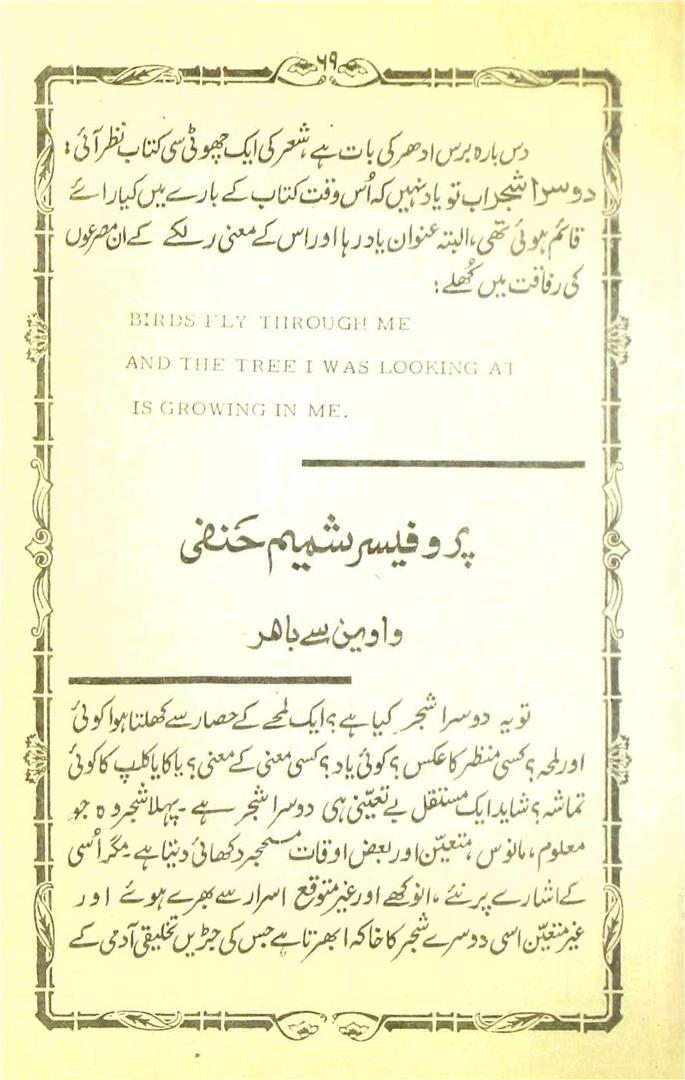 ۶۹
دس بارہ برس ادھر کی بات ہے، شعر کی ایک چھوٹی سی کتاب نظر آئی :
دوسرا شجر اب تو یاد نہیں کہ اُس وقت کتاب کے بارے میں کیا رائے
قائم ہوئی تھی، البتہ عنوان یاد رہا اور اس کے معنی رلکے کے ان مصرعوں
کی رفاقت میں کُھلے :
BIRDS FLY THROUGH ME
AND THE TREE I WAS LOOKING AT
IS GROWING IN ME.
پروفیسر شمیم حَنفی
واوین سے باھر
تو یہ دوسرا شجر کیا ہے؟ ایک لمحے کے حصار سے کھلتا ہوا کوئی
اور لمحہ؟ کسی منظر کا عکس؟ کوئی یاد؟ کسی معنی کے معنی؟ یا کایا کلپ کا کوئی
تماشہ؟ شاید ایک مستقل بے تعیّنی ہی دوسرا شجر ہے ۔ پہلا شجر وہ جو
معلوم، مانوس، متعیّن اور بعض اوقات مستحجر دکھائی دیتا ہے۔ مگر اُسی
کے اشارے پر نئے، انوکھے اور غیر متوقع اسرار سے بھرے ہوئے اور
غیر متعیّن اسی دوسرے شجر کا خاکہ ابھرتا ہے جس کی جڑیں تخلیقی آدمی کے